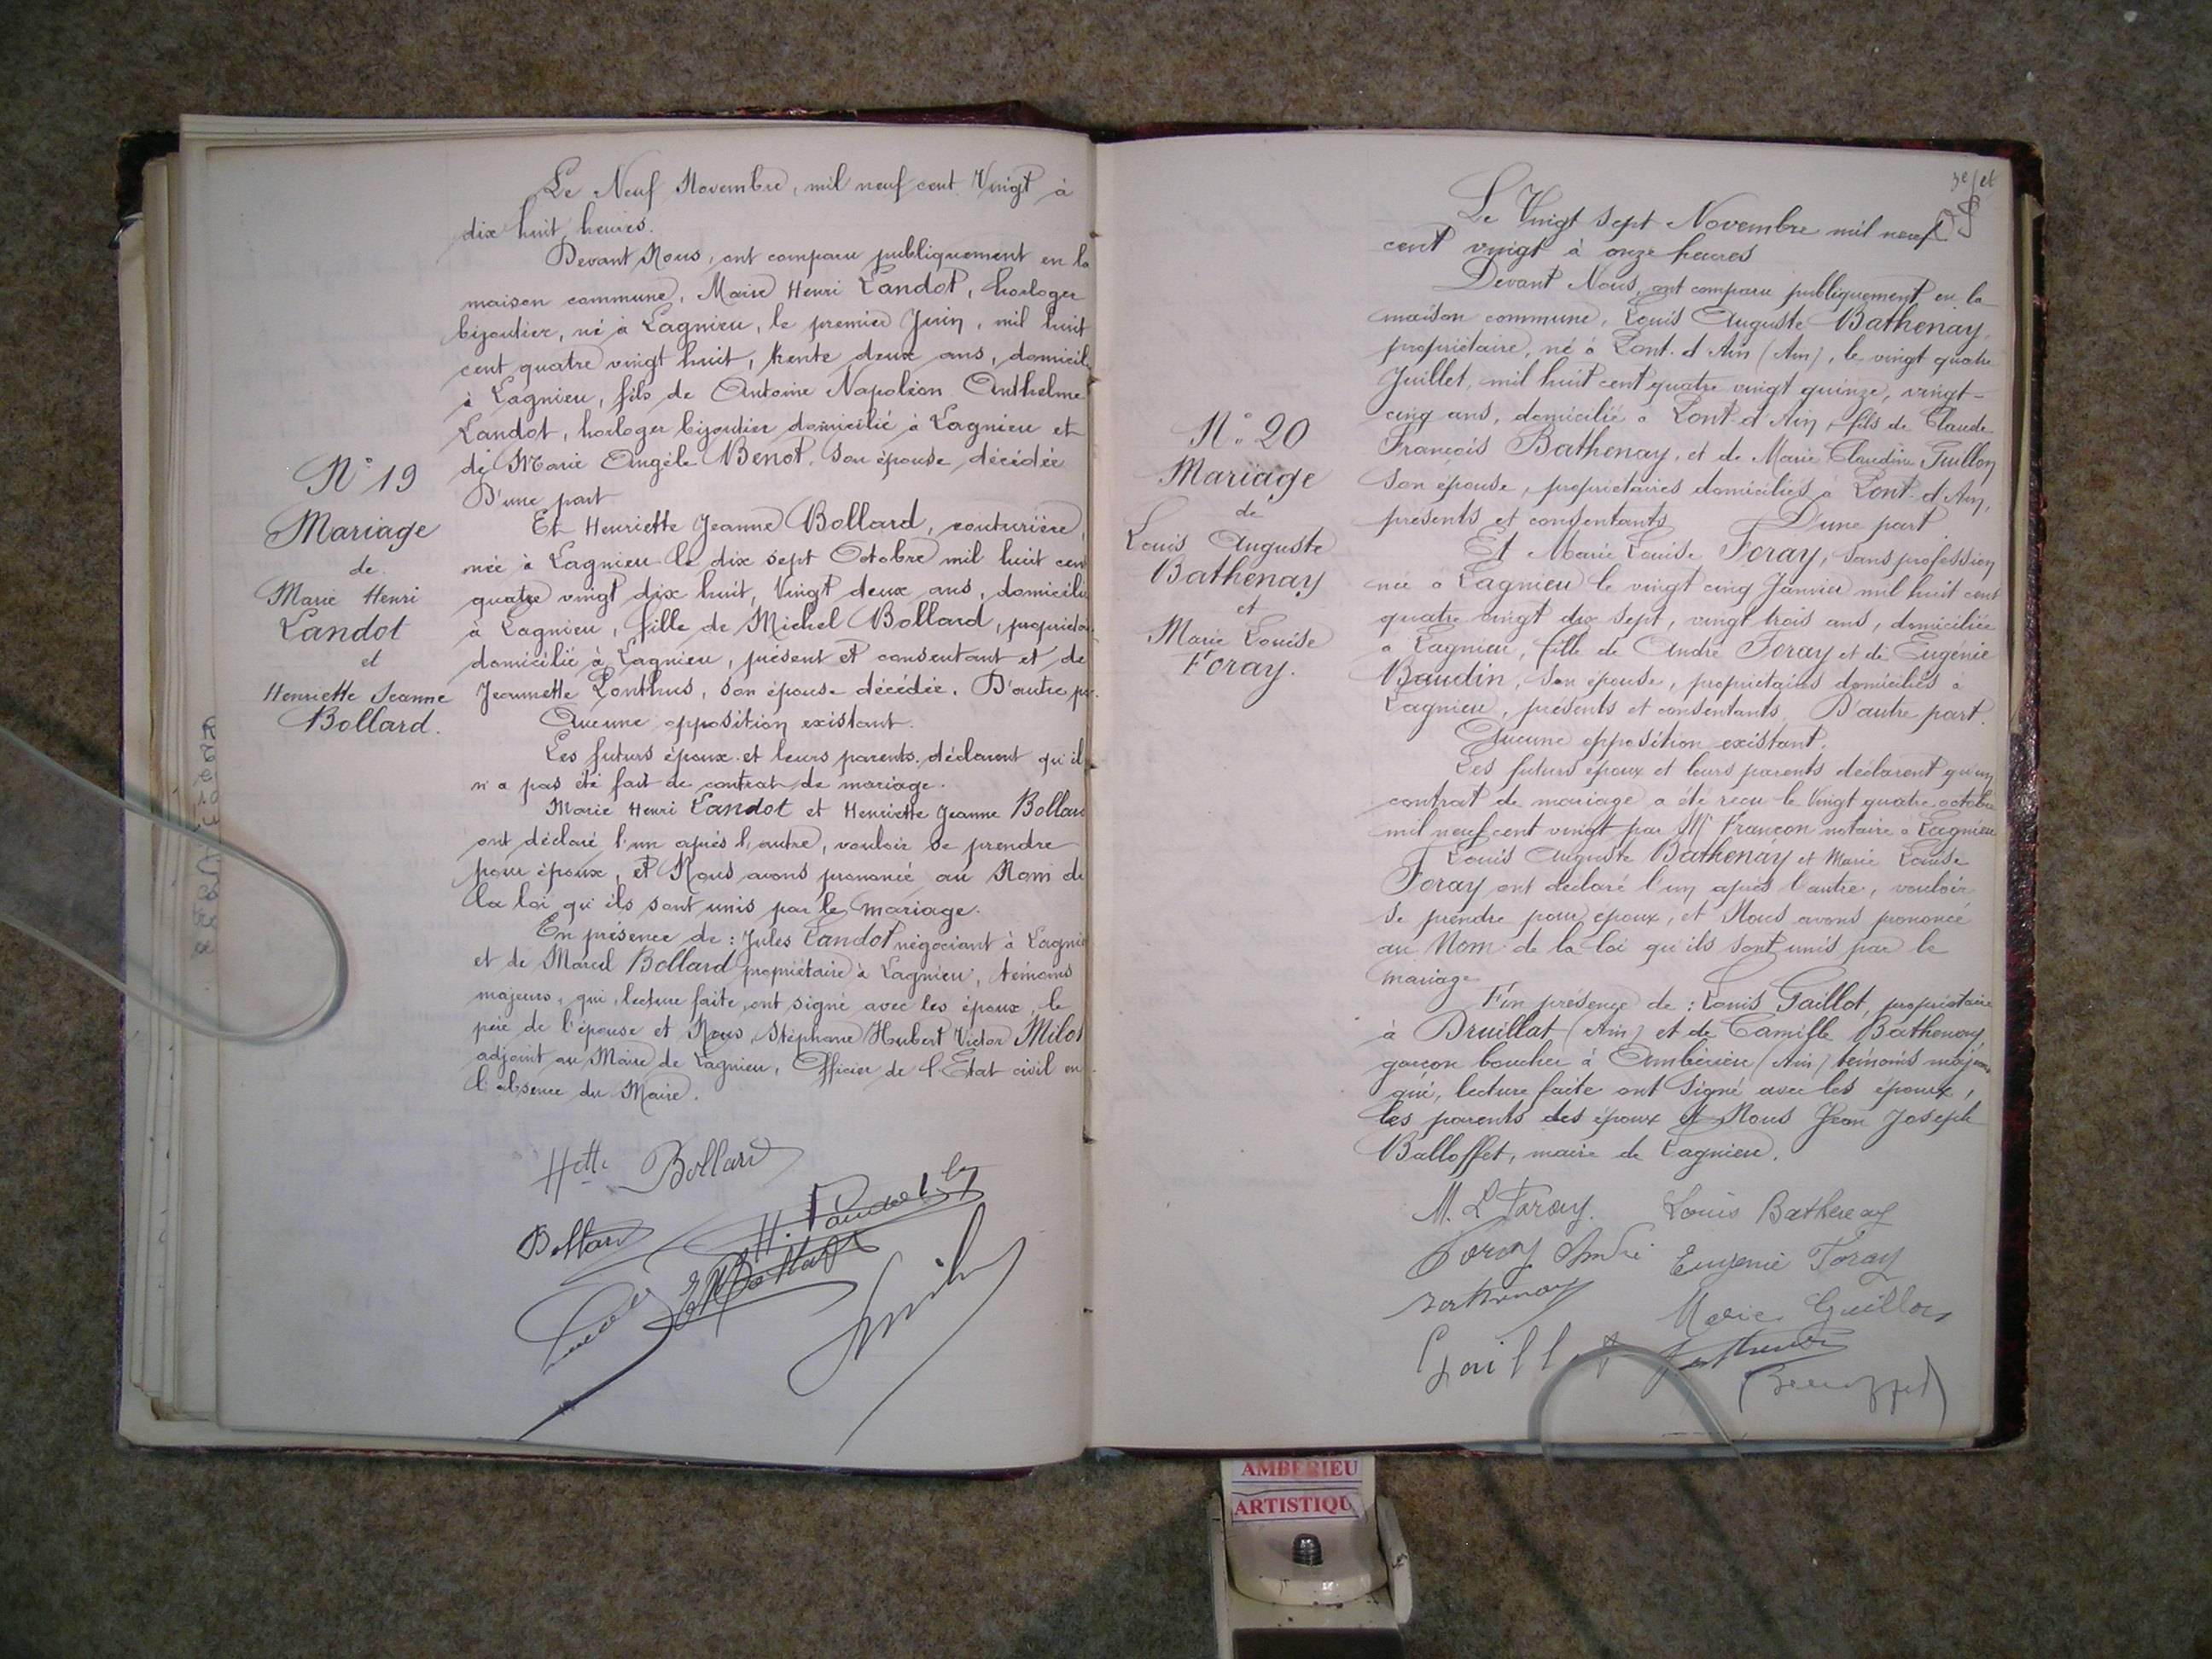 Le Neuf Novembre, mil neuf cent Vingt à
dix huit heures.
Devant Nous, ont comparu publiquement en la
maison commune, Marie Henri Landot, horloger
bijoutier, né à Lagnieu, le premier Juin, mil huit
cent quatre vingt huit, trente deux ans, domicil
à Lagnieu, fils de Antoine Napoléon Anthelme
Landot, horloger bijoutier domicilié à Lagnieu et
de Marie Angèle Benot, son épouse décédée
D'une part
Et Henriette Jeanne Bollard, couturière,
née à Lagnieu le dix sept Octobre mil huit cent
quatre vingt dix huit, Vingt deux ans, domicilié
à Lagnieu, fille de Michel Bollard,
domicilié à Lagnieu, présent et consentant et de
Jeannette Ponthus, son épouse décédée. D'autre
Aucune opposition existant.
Les futurs époux et leurs parents déclarent qu'il
n'a pas été fait de contrat de mariage.
Marie Henri Landot et Henriette Jeanne Bollar
ont déclaré l'un après l'autre, vouloir se prendre
pour époux, et Nous avons prononcé au Nom de
la loi qu'ils sont unis par le mariage.
En présence de : Jules Landot négociant à Lagnie
et de Marcel Bollard propriétaire à Lagnieu, témoins
majeurs, qui, lecture faite, ont signé avec les époux, le
père de l'épouse et Nous, Stéphane Hubert Victor Milot
adjoint au Maire de Lagnieu, Officier de l'Etat civil en
l'absence du Maire.
N° 19
Mariage
de
Marie Henri
Landot
et
Henriette Jeanne
Bollard.
Htte Bollard
H. Landot
Bollard
Le Vingt sept Novembre mil neuf
cent vingt à onze heures
Devant Nous, ont comparu publiquement en la
maison commune, Louis Auguste Bathenay,
propriétaire, né à Pont-d'Ain (Ain), le vingt quatre
Juillet, mil huit cent quatre vingt quinze, vingt-
cinq ans, domicilié à Pont-d'Ain, fils de Claude
François Bathenay, et de Marie Claudine Guillon
son épouse, propriétaires domiciliés à Pont-d'Ain,
présents et consentants D'une part
Et Marie Louise Foray, sans profession
née à Lagnieu le vingt cinq Janvier mil huit cent
quatre vingt dix sept, vingt trois ans, domiciliée
à Lagnieu, fille de André Foray et de Eugenie
Baudin, son épouse, propriétaires domiciliés à
Lagnieu, présents et consentants D'autre part.
Aucune opposition existant.
Les futurs époux et leurs parents déclarent qu'un
contrat de mariage a été reçu le Vingt quatre octobre
mil neuf cent vingt par Me Françon notaire à Lagnieu
Louis Auguste Bathenay et Marie Louise
Foray ont déclaré l'un après l'autre, vouloir
se prendre pour époux, et Nous avons prononcé
au Nom de la loi qu'ils sont unis par le
mariage
En présence de : Louis Gaillot, propriétaire
à Druillat (Ain) et de Camille Bathenay
garçon boucher à Ambérieu (Ain) témoins majeurs
qui, lecture faite ont signé avec les époux,
les parents des époux et Nous Jean Joseph
Balloffet, maire de Lagnieu.
N° 20
Mariage
de
Louis Auguste
Bathenay
et
Marie Louise
Foray.
M. L Foray. Louis Bathenay
Foray André Eugenie Foray
Bathenay Marie Guillon
Gaillot Bathenay
Balloffet
AMBERIEU
ARTISTIQU